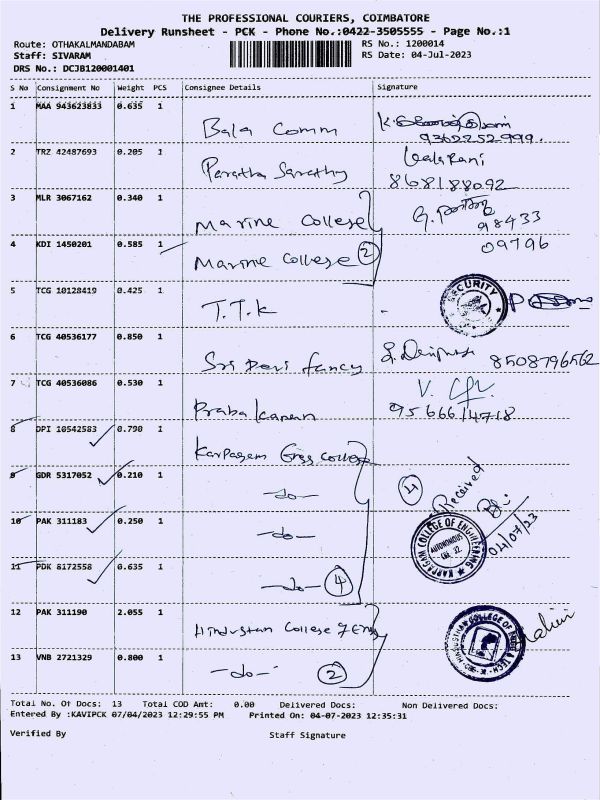 THE PROFESSIONAL COURIERS, COIMBATORE
Delivery Runsheet - PCK - Phone No.:0422-3505555 - Page No.:1
Route: OTHAKALMANDABAM RS No.: 1200014
Staff: SIVARAM RS Date: 04-Jul-2023
DRS No.: DCJB120001401
S No Consignment No Weight PCS Consignee Details Signature
1 MAA 943623833 0.635 1
Bala Comm
9362252999.
2 TRZ 42487693 0.205 1
Paratha Sarathy
8681188092
3 MLR 3067162 0.340 1
Marine College
98433
4 KDI 1450201 0.585 1
Marine College 2
09796
5 TCG 10128419 0.425 1
T.T.K
SECURITY
6 TCG 40536177 0.850 1
Sri Devi fancy 8508796562
7 TCG 40536086 0.530 1
Praba karan
9566614718
8 DPI 10542583 0.790 1
Karpagam Engg College
9 GDR 5317052 0.210 1
-do- 4 Received
10 PAK 311183 0.250 1
-do- 04/07/23
KARPAGAM COLLEGE OF ENGINEERING
AUTONOMOUS
11 PDK 8172558 0.635 1
-do- 4
12 PAK 311190 2.055 1
Hindustan College of Eng
HINDUSTHAN COLLEGE OF ENGG & TECH
13 VNB 2721329 0.800 1
-do- 2
Total No. Of Docs: 13 Total COD Amt: 0.00 Delivered Docs: Non Delivered Docs:
Entered By :KAVIPCK 07/04/2023 12:29:55 PM Printed On: 04-07-2023 12:35:31
Verified By Staff Signature